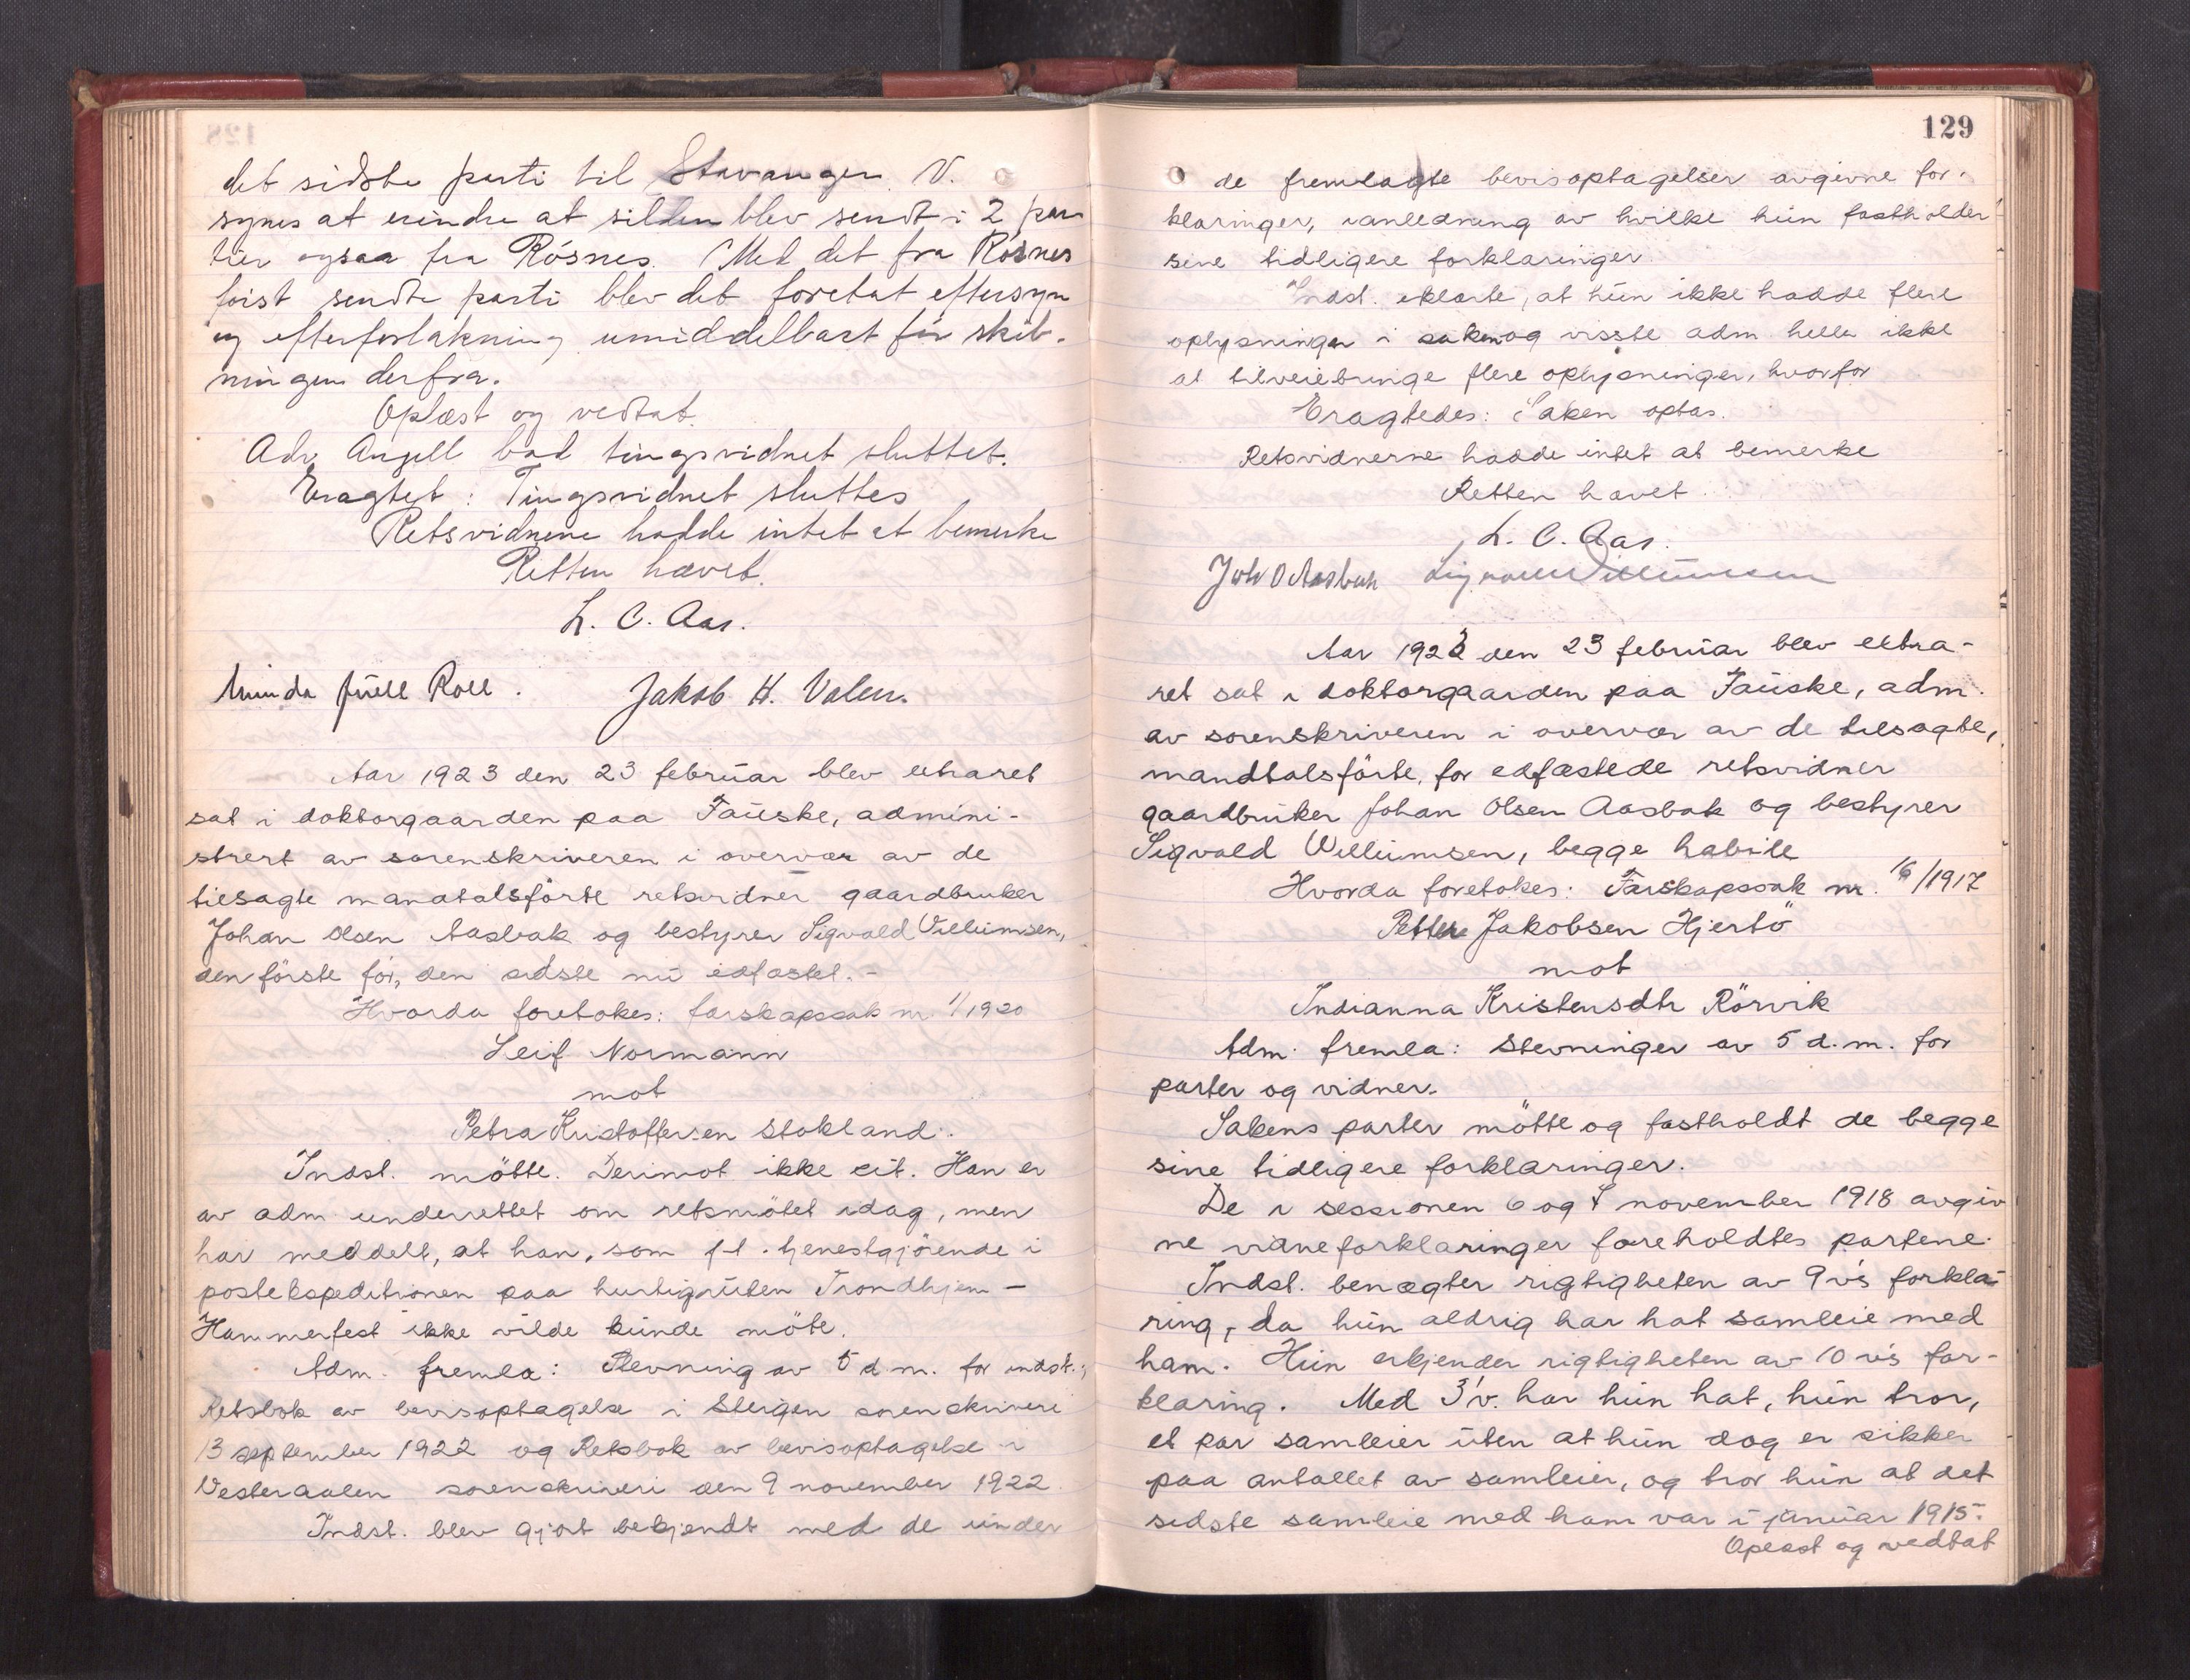 det sidste parti til Stavanger. V.
synes at erindre at silden blev sendt i 2 par
tier ogsaa fra Røsnes. Med det fra Røsnes
først sendte parti blev det foretat eftersyn
og efterforlakning umiddelbart før skib-
ningen derfra.
Oplæst og vedtat.
Adv. Angell bad tingsvidnet sluttet.
Eragtet: Tingsvidnet sluttes
Retsvidnene hadde intet at bemerke
Retten hævet.
L. C. Aas.
Minda Juell Roll. Jakob H. Valen.
Aar 1923 den 23 februar blev extraret
sat i doktorgaarden paa Fauske, admini-
strert av sorenskriveren i overvær av de
tilsagte mandtalsførte retsvidner gaardbruker
Johan Olsen Aasbak og bestyrer Sigvald Willumsen,
den første før, den sidste nu edfæstet. -
Hvorda foretokes: farskapssak nr. 1/1920
Leif Normann
mot
Petra Kristoffersen Stokland.
Indst. møtte. Derimot ikke cit. Han er
av adm. underrettet om retsmøtet idag, men
har meddelt, at han, som f.t. tjenestgjørende i
postekspeditionen paa hurtigruten Trondhjem -
Hammerfest ikke vilde kunde møte.
Adm. fremla: Stevning av 5 d.m. for indst.;
Retsbok av bevisoptagelse i Steigen sorenskriveri
13 september 1922 og Retsbok av bevisoptagelse i
Vesteraalen sorenskriveri den 9 november 1922
Indst. blev gjort bekjendt med de under
129
de fremlagte bevisoptagelser avgivne for-
klaringer, i anledning av hvilke hun fastholder
sine tidligere forklaringer.
Indst. erklærte, at hun ikke hadde flere
oplysninger i saken og visste adm. heller ikke
at tilveiebringe flere oplysninger, hvorfor
Eragtedes: Saken optas.
Retsvidnerne hadde intet at bemerke
Retten hævet.
L. C. Aas.
Joh O Aasbak Sigvald Willumsen
Aar 1923 den 23 februar blev extra-
ret sat i doktorgaarden paa Fauske, adm.
av sorenskriveren i overvær av de tilsagte,
mandtalsførte, før edfæstede retsvidner
gaardbruker Johan Olsen Aasbak og bestyrer
Sigvald Willumsen, begge habile
Hvorda foretokes: Farskapssak nr. 16/1917
Petter Jakobsen Hjertö
mot
Indianna Kristensdtr Rörvik
Adm. fremla: Stevninger av 5 d.m. for
parter og vidner.
Sakens parter møtte og fastholdt de begge
sine tidligere forklaringer.
De i sessionen 6 og 7 november 1918 avgiv
ne vidneforklaringer foreholdtes partene.
Indst. benægter rigtigheten av 9 v's forkla-
ring, da hun aldrig har hat samleie med
ham. Hun erkjender rigtigheten av 10 v's for-
klaring. Med 3' v. har hun hat, hun tror,
et par samleier uten at hun dog er sikker
paa antallet av samleier, og tror hun at det
sidste samleie med ham var i januar 1915.
Oplæst og vedtat